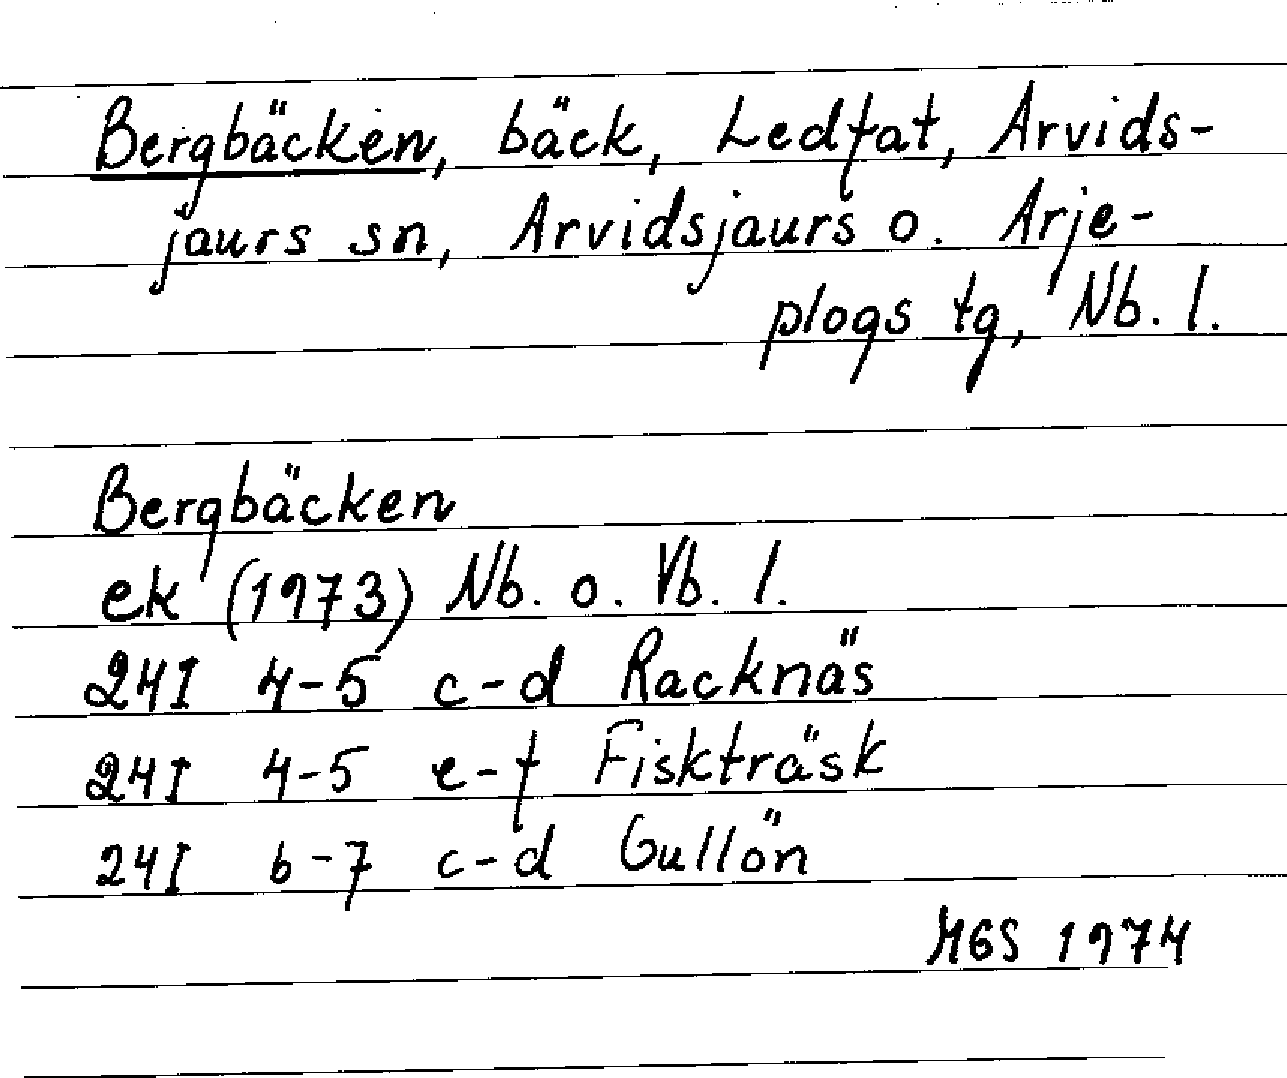 Bergbäcken, bäck, Ledfat, Arvids-
jaurs sn, Arvidsjaurs o. Arje-
plogs tg, Nb. l.
Bergbäcken
ek (1973) Nb. o. Vb. l.
24I 4-5 c-d Racknäs
24I 4-5 e-f Fiskträsk
24I 6-7 c-d Gullön
MGS 1974